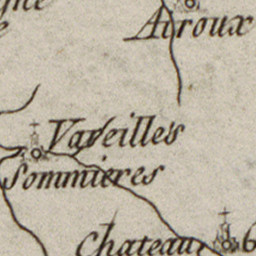 Airoux
Vareilles
Sommieres
Chateau 6